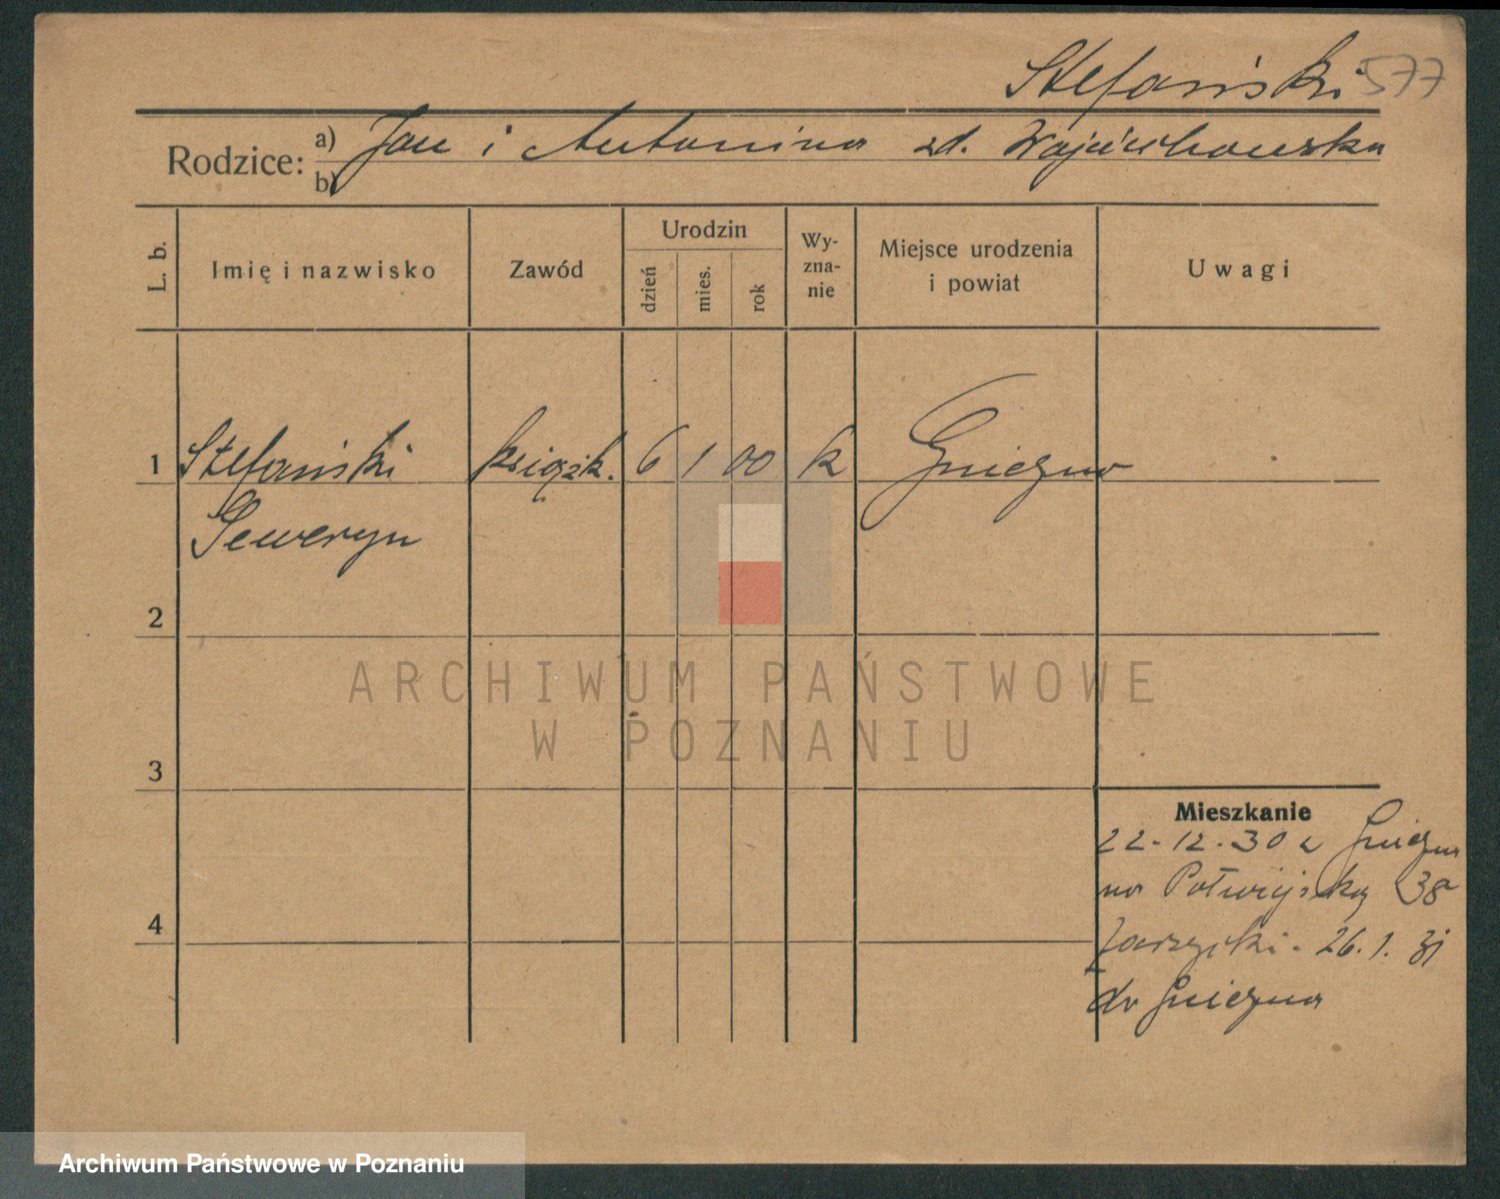 Stefański 577
Rodzice: a) Jan i Antonina zd. Wojciechowska
b)
L. b.
Imię i nazwisko
Zawód
Urodzin
dzień
mies.
rok
Wy-
zna-
nie
Miejsce urodzenia
i powiat
Uwagi
1 Stefański książk. 6 1 00 k Gniezno
Seweryn
2
3
4
Mieszkanie
22-12-30 z Gniezna
na Półwiejską 38
26.1.31
do Gniezna
ARCHIWUM PAŃSTWOWE
W POZNANIU
Archiwum Państwowe w Poznaniu